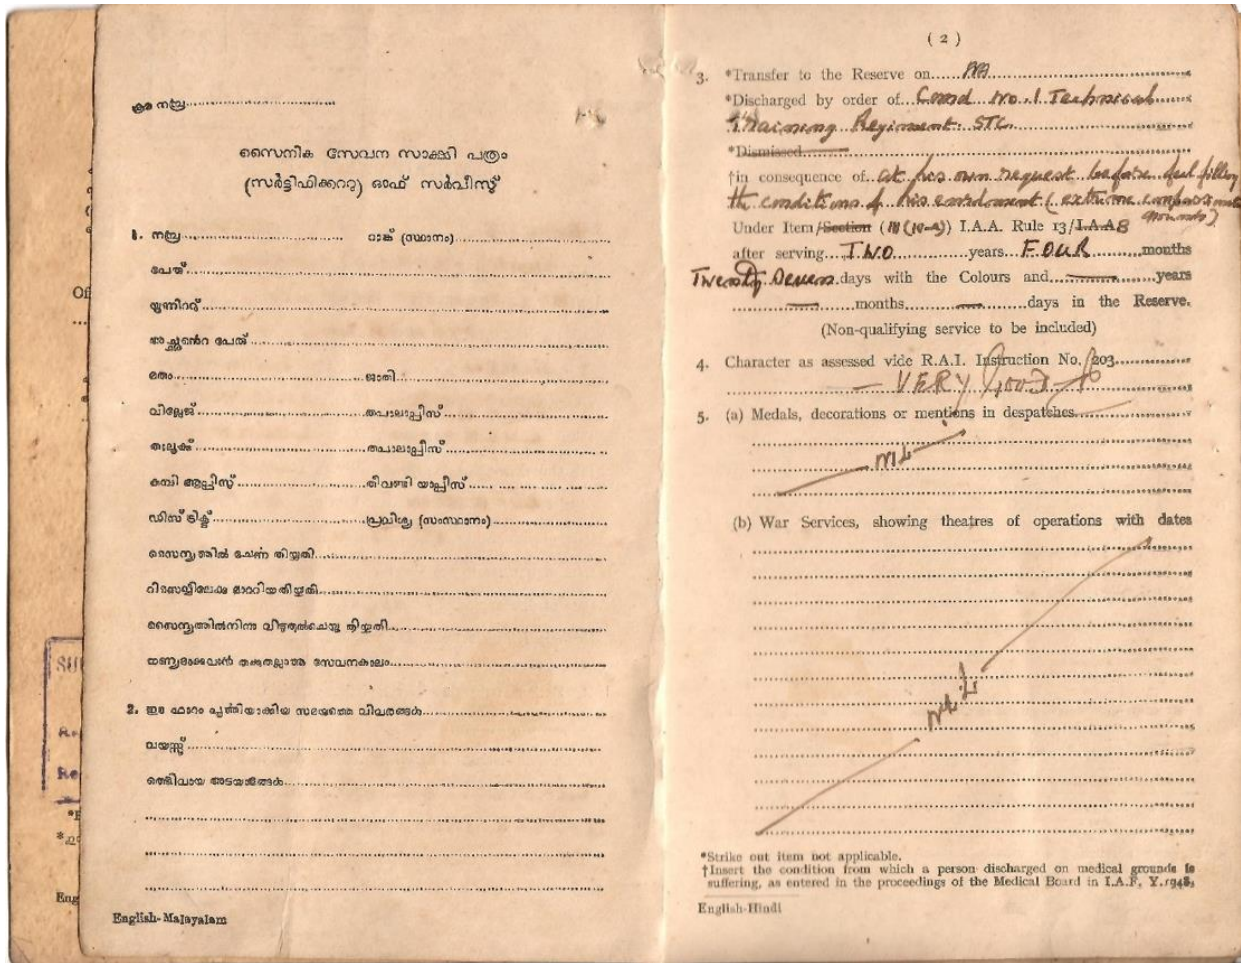 ക്രമ നമ്പ്ര
സൈനിക സേവന സാക്ഷി പത്രം
(സർട്ടിഫിക്കററ്) ഓഫ് സർവീസ്സ്
1. നമ്പ്ര റാങ്ക് (സ്ഥാനം)
പേര്
യൂണിററ്
അച്ഛൻെറ പേര്
മതം ജാതി
വില്ലേജ് തപാലാപ്പീസ്
താലൂക്ക് തപാലാപ്പീസ്
കമ്പി ആപ്പീസ് തീവണ്ടി യാപ്പീസ്
ഡിസ്ട്രിക്ട് പ്രവിശ്യ (സംസ്ഥാനം)
സൈന്യത്തിൽ ചേർണ തിയ്യതി
റിസൎവ്വിലേക്കു മാററിയ തിയ്യതി
സൈന്യത്തിൽനിന്നു വിടുതൽചെയ്ത തിയ്യതി
സേവനകാലം
2. ഈ ഫാറം പൂൎത്തിയാക്കിയ സമയത്തെ വിവരങ്ങൾ
വയസ്സ്
അടയാളങ്ങൾ
English-Malayalam
( 2 )
3. *Transfer to the Reserve on NA
*Discharged by order of Comd No. 1 Technical
Training Regiment STC
*Dismissed
†in consequence of at his own request before ful filling
the conditions of his enrolment (extreme compassionate grounds)
Under Item/Section (III (IV-a)) I.A.A. Rule 13/I.A.A.
after serving TWO years FOUR months
Twenty Seven days with the Colours and years
months days in the Reserve.
(Non-qualifying service to be included)
4. Character as assessed vide R.A.I. Instruction No. 203
VERY GOOD
5. (a) Medals, decorations or mentions in despatches
NIL
(b) War Services, showing theatres of operations with dates
NIL
*Strike out item not applicable.
†Insert the condition from which a person discharged on medical grounds is
suffering, as entered in the proceedings of the Medical Board in I.A.F. Y.1948,
English-Hindi